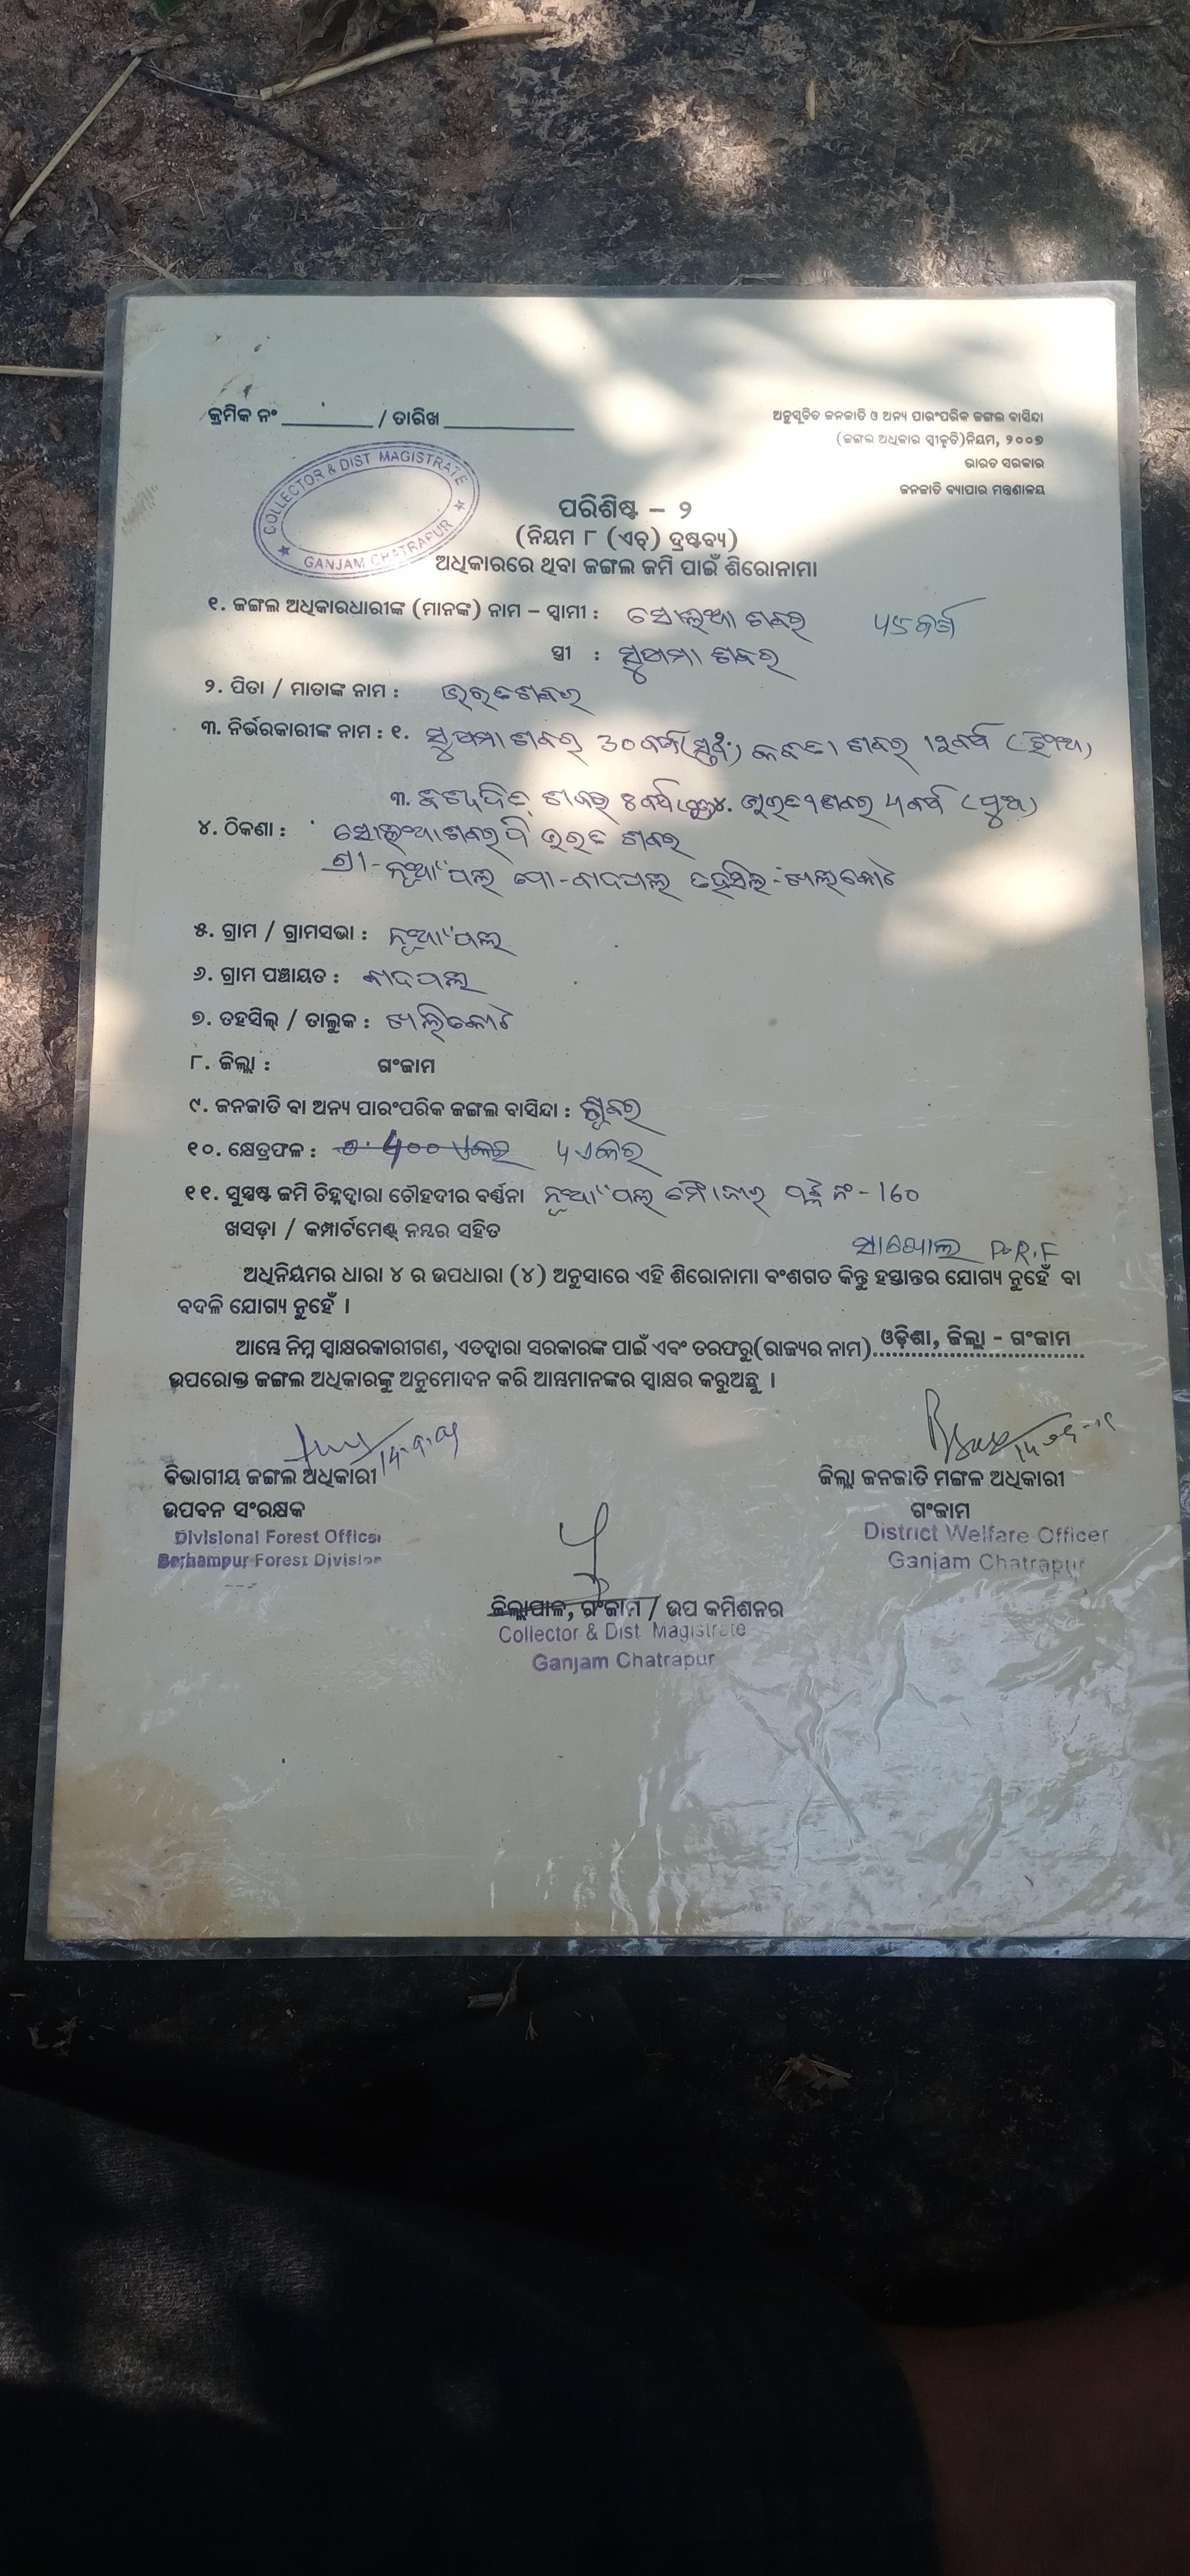 କ୍ରମିକ ନଂ ________ / ତାରିଖ ____________
ଅନୁସୂଚିତ ଜନଜାତି ଓ ଅନ୍ୟ ପାରଂପରିକ ଜଙ୍ଗଲ ବାସିନ୍ଦା
(ଜଙ୍ଗଲ ଅଧିକାର ସ୍ୱୀକୃତି)ନିୟମ, ୨୦୦୭
ଭାରତ ସରକାର
ଜନଜାତି ବ୍ୟାପାର ମନ୍ତ୍ରଣାଳୟ
COLLECTOR & DIST MAGISTRATE
GANJAM CHATRAPUR
ପରିଶିଷ୍ଟ – ୨
(ନିୟମ ୮ (ଏଚ୍) ଦ୍ରଷ୍ଟବ୍ୟ)
ଅଧିକାରରେ ଥିବା ଜଙ୍ଗଲ ଜମି ପାଇଁ ଶିରୋନାମା
୧. ଜଙ୍ଗଲ ଅଧିକାରଧାରୀଙ୍କ (ମାନଙ୍କ) ନାମ – ସ୍ୱାମୀ : ଶବର ୪୫ ବର୍ଷ
ସ୍ତ୍ରୀ : ସୁଷମା ଶବର
୨. ପିତା / ମାତାଙ୍କ ନାମ : ଭରତ ଶବର
୩. ନିର୍ଭରକାରୀଙ୍କ ନାମ : ୧. ସୁଷମା ଶବର 30 ବର୍ଷ (ସ୍ତ୍ରୀ) ଶବର ୧୨ ବର୍ଷ (ଝିଅ)
୩. ଶବର ୫ ବର୍ଷ ୪. ଶବର ୪ ବର୍ଷ (ପୁଅ)
୪. ଠିକଣା : ଶବର ପି ଭରତ ଶବର
ଗ୍ରା - ନୂଆଁପଲ୍ଲୀ ପୋ - ବାଦପଲ୍ଲୀ ତହସିଲ - ଖଲିକୋଟ
୫. ଗ୍ରାମ / ଗ୍ରାମସଭା : ନୂଆଁପଲ୍ଲୀ
୬. ଗ୍ରାମ ପଞ୍ଚାୟତ : ବାଦପଲ୍ଲୀ
୭. ତହସିଲ୍ / ତାଲୁକ : ଖଲିକୋଟ
୮. ଜିଲ୍ଲା : ଗଂଜାମ
୯. ଜନଜାତି ବା ଅନ୍ୟ ପାରଂପରିକ ଜଙ୍ଗଲ ବାସିନ୍ଦା : ଶବର
୧୦. କ୍ଷେତ୍ରଫଳ : ୪ ଏକର
୧୧. ସୁସ୍ପଷ୍ଟ ଜମି ଚିହ୍ନଦ୍ୱାରା ଚୌହଦୀର ବର୍ଣ୍ଣନା ନୂଆଁପଲ୍ଲୀ ମୌଜାର ପ୍ଲଟ ନଂ - 160
ଖସଡ଼ା / କମ୍ପାର୍ଟମେଣ୍ଟ ନମ୍ବର ସହିତ
P.R.F
ଅଧିନିୟମର ଧାରା ୪ ର ଉପଧାରା (୪) ଅନୁସାରେ ଏହି ଶିରୋନାମା ବଂଶଗତ କିନ୍ତୁ ହସ୍ତାନ୍ତର ଯୋଗ୍ୟ ନୁହେଁ ବା
ବଦଳି ଯୋଗ୍ୟ ନୁହେଁ ।
ଆମ୍ଭେ ନିମ୍ନ ସ୍ୱାକ୍ଷରକାରୀଗଣ, ଏତଦ୍ୱାରା ସରକାରଙ୍କ ପାଇଁ ଏବଂ ତରଫରୁ(ରାଜ୍ୟର ନାମ) ଓଡ଼ିଶା, ଜିଲ୍ଲା - ଗଂଜାମ
ଉପରୋକ୍ତ ଜଙ୍ଗଲ ଅଧିକାରଙ୍କୁ ଅନୁମୋଦନ କରି ଆମ୍ଭମାନଙ୍କର ସ୍ୱାକ୍ଷର କରୁଅଛୁ ।
ବିଭାଗୀୟ ଜଙ୍ଗଲ ଅଧିକାରୀ
ଉପବନ ସଂରକ୍ଷକ
Divisional Forest Officer
Berhampur Forest Division
ଜିଲ୍ଲା ଜନଜାତି ମଙ୍ଗଳ ଅଧିକାରୀ
ଗଂଜାମ
District Welfare Officer
Ganjam Chatrapur
ଜିଲ୍ଲାପାଳ, ଗଂଜାମ / ଉପ କମିଶନର
Collector & Dist. Magistrate
Ganjam Chatrapur